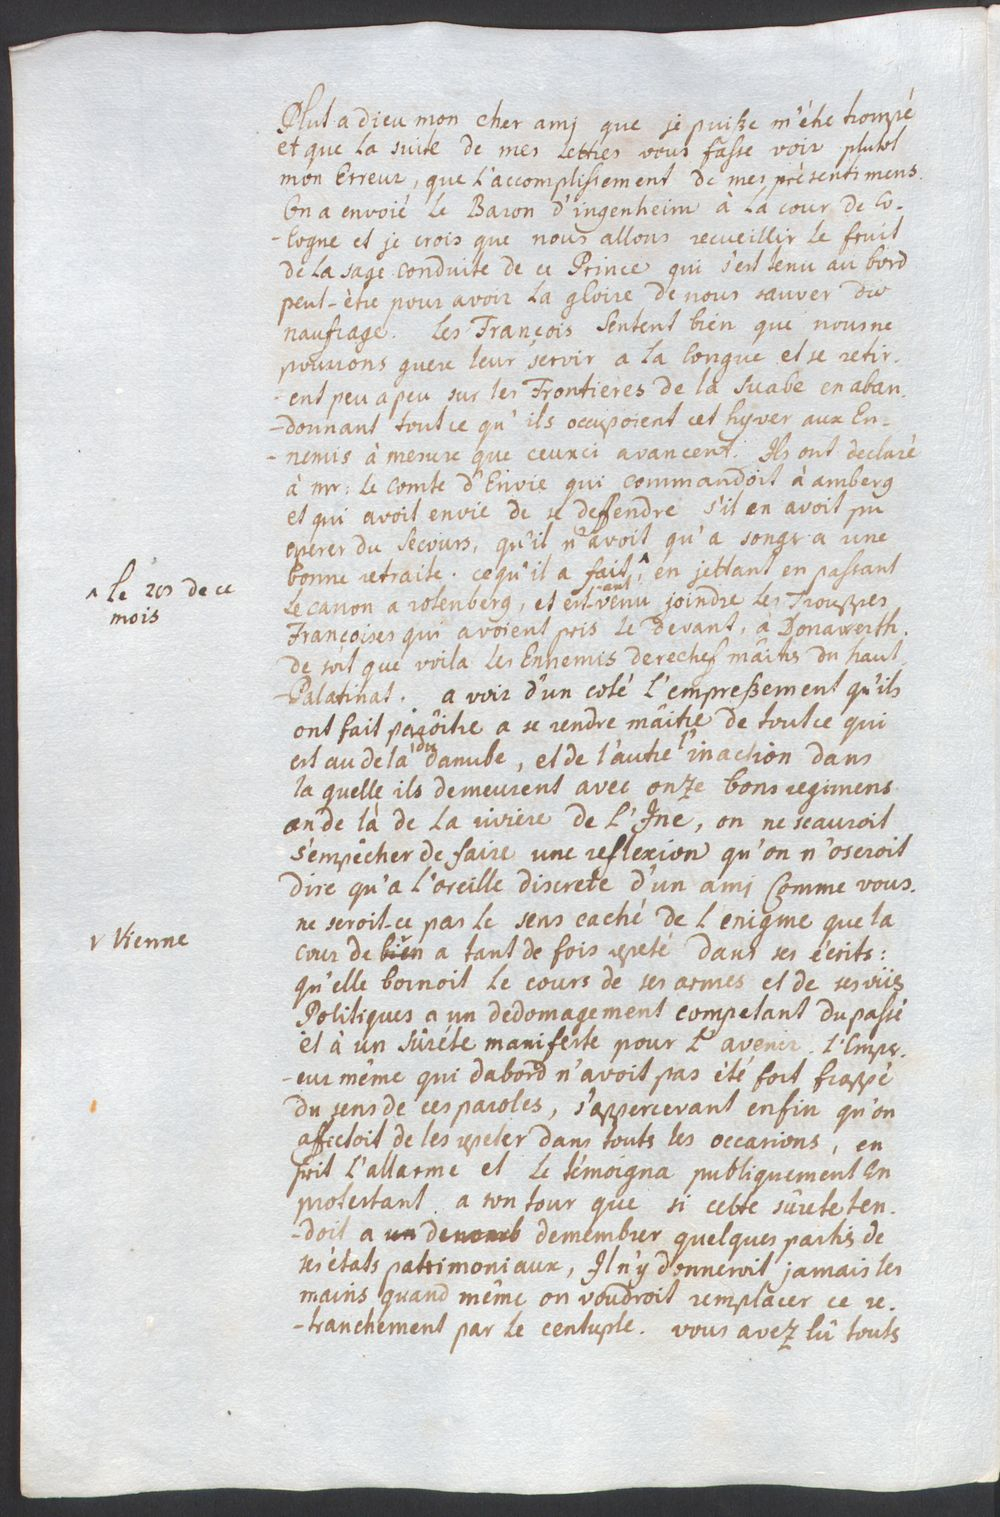 Plut a dieu mon cher amj que je puisse m'étre trompé
et que la suite de mes lettres vous fasse voir plutot
mon Erreur, que l'accomplissement de mes présentimens.
On a envoié le Baron d'ingenheim à la cour de Co-
-logne et je crois que nous allons recueillir le fruit
de la sage conduite de ce Prince qui s'est tenu au bord
peut-être pour avoir la gloire de nous sauver du
naufrage. les François sentent bien que nous ne
pouvons guere leur servir a la longue et se retir-
-ent peu a peu sur les Frontieres de la Suabe en aban-
-donnant tout ce qu'ils occupoient cet hyver aux En-
-nemis à mesure que ceuxci avancent. Ils ont declaré
à mr: le comte d'Envie qui commandoit à amberg
et qui avoit envie de se defendre s'il en avoit pu
esperer du Secours, qu'il n'avoit qu'a songer a une
bonne retraite. cequ'il a fait ^, en jettant en passant
^ le 20 de ce
mois
le canon a rotenberg, et est venu joindre les Trouppes
Françoises qui avoient pris le devant, à Donawerth.
de sort que voila les Ennemis derechef mâitrs du haut
-Palatinat. a voir d'un coté l'empressement qu'ils
ont fait paroître a se rendre mâitre de tout ce qui
est au delà du danube, et de l'autre l'inaction dans
la quelle ils demeurent avec onze bons regimens
en de là de la riviere de l'Jne, on ne scauroit
s'empêcher de faire une reflexion qu'on n'oseroit
dire qu'a l'oreille discrete d'un amj Comme vous.
ne seroit-ce pas le sens caché de l'enigme que la
v Vienne
cour de bien a tant de fois repeté dans ses écrits:
qu'elle bornoit le cours de ses armes et de ses vûës
Politiques a un dedomagement competant du passé
et à un sûréte manifeste pour l'avenir. l'Empr-
-eur même qui dabord n'avoit pas été fort frappé
du sens de ces paroles, s'appercevant enfin qu'on
affectoit de les repeter dans touts les occasions, en
prit l'allarme et le témoigna publiquement En
protestant a son tour que si cette sûrete ten-
-doit a un denomb demembrer quelques partis de
ses états patrimoniaux, Jl n'y donneroit jamais les
mains quand même on voudroit remplacer ce re-
-tranchement par le centuple. vous avez lû touts